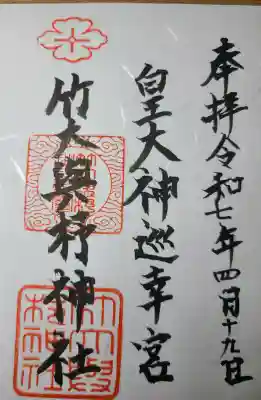 奉拝令和七年四月十九日
皇大神巡幸宮
竹大與杼神社